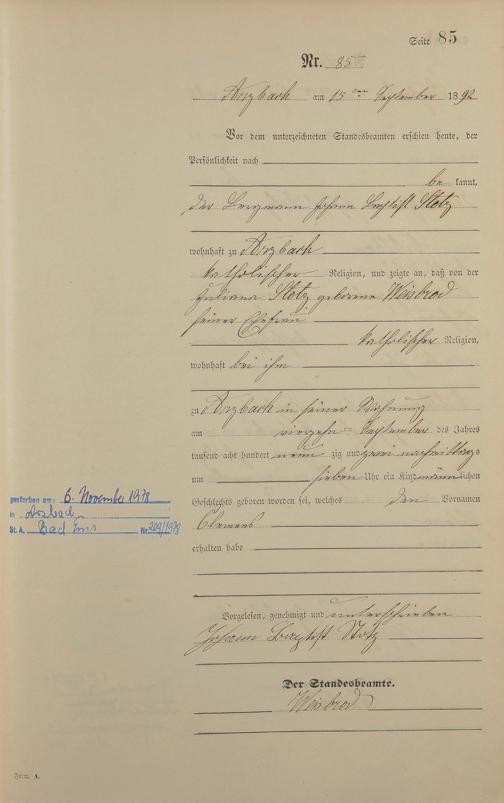 Seite 85
Nr. 85
Arzbach am 15ten September 1892
Vor dem unterzeichneten Standesbeamten erschien heute, der
Persönlichkeit nach
be kannt,
der Bergmann Johann Baptist Stotz
wohnhaft zu Arzbach
katholischer Religion, und zeigte an, daß von der
Juliana Stotz geborene Weisbrod
seiner Ehefrau
katholischer Religion,
wohnhaft bei ihm
zu Arzbach in seiner Wohnung
am vierzehn September des Jahres
tausend acht hundert neun zig und zwei nachmittags
um sieben Uhr ein Kind männlichen
Geschlechts geboren worden sei, welches den Vornamen
Clemens
erhalten habe
gestorben am: 6. November 1978
in Arzbach
St. A. Bad Ems Nr. 209/1978
Vorgelesen, genehmigt und unterschrieben
Johann Baptist Stotz
Der Standesbeamte.
Weisbrod
Form. A.